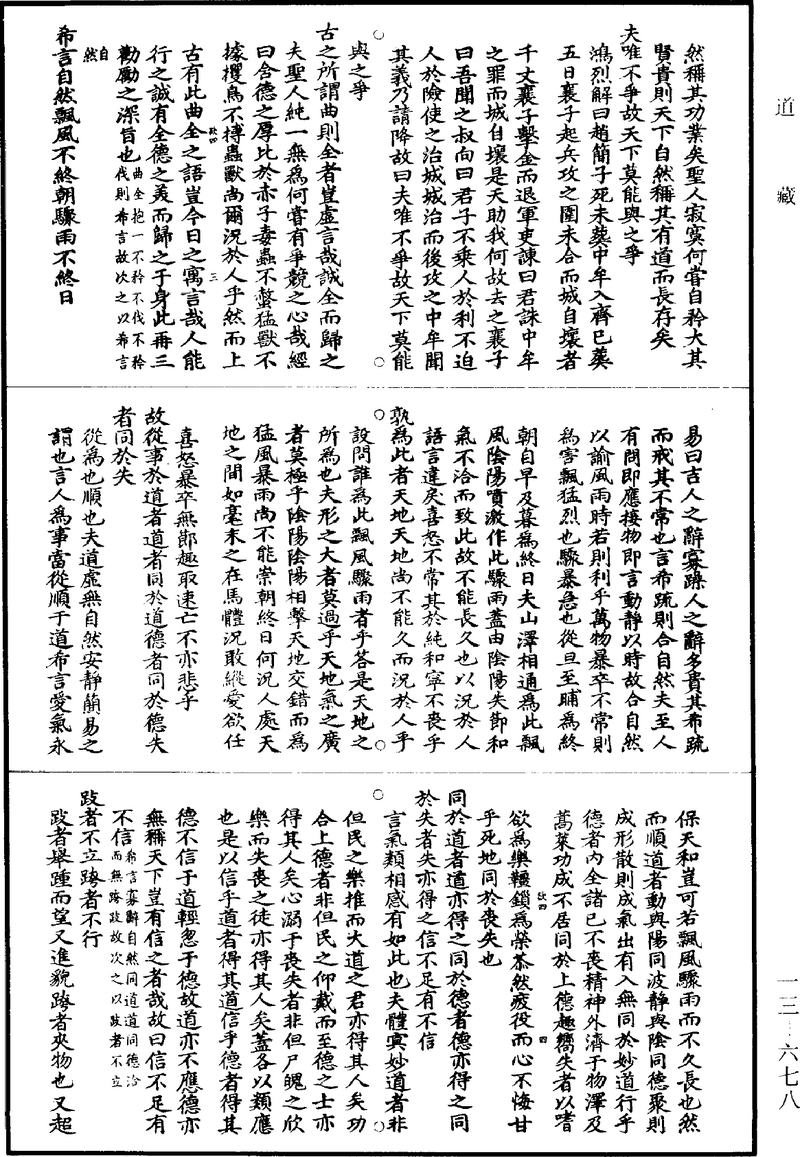 道藏
然稱其功業矣聖人寂寞何嘗自矜大其
賢貴則天下自然稱其有道而長存矣
夫唯不爭故天下莫能與之爭
鴻烈解曰趙簡子死未葬中牟入齊已葬
五日襄子起兵攻之圍未合而城自壞者
千丈襄子擊金而退軍吏諫曰君誅中牟
之罪而城自壞是天助我何故去之襄子
曰吾聞之叔向曰君子不乘人於利不迫
人於險使之治城城治而後攻之中牟聞
其義乃請降故曰夫唯不爭故天下莫能
與之爭
古之所謂曲則全者豈虛言哉誠全而歸之
夫聖人純一無為何嘗有爭競之心哉經
曰含德之厚比於赤子毒蟲不螫猛獸不
據攫鳥不搏蟲獸尚爾況於人乎然而上
欲四 三
古有此曲全之語豈今日之寓言哉人能
行之誠有全德之美而歸之于身此再三
勸勵之深旨也曲全抱一不矜不伐不矜伐則希言故次之以希言自然
希言自然飄風不終朝驟雨不終日
易曰吉人之辭寡躁人之辭多貴其希疏
而戒其不常也言希疏則合自然夫至人
有問即應接物即言動靜以時故合自然
以諭風雨時若則利乎萬物暴卒不常則
為害飄猛烈也驟暴急也從旦至晡為終
朝自早及暮為終日夫山澤相通為此飄
風陰陽噴激作此驟雨蓋由陰陽失節和
氣不洽而致此故不能長久也以況於人
語言違戾喜怒不常其於純和寧不喪乎
孰為此者天地天地尚不能久而況於人乎
設問誰為此飄風驟雨者乎答是天地之
所為也夫形之大者莫過乎天地氣之廣
者莫極乎陰陽陰陽相擊天地交錯而為
猛風暴雨尚不能崇朝終日何況人處天
地之間如毫末之在馬體況敢縱愛欲任
喜怒暴卒無節趣取速亡不亦悲乎
故從事於道者道者同於道德者同於德失
者同於失
從為也順也夫道虛無自然安靜簡易之
謂也言人為事當從順于道希言愛氣永
保天和豈可若飄風驟雨而不久長也然
而順道者動與陽同波靜與陰同德聚則
成形散則成氣出有入無同於妙道行乎
德者內全諸己不喪精神外濟于物澤及
蒿萊功成不居同於上德趣嚮失者以嗜
欲四 四
欲為樂韁鎖為榮苶然疲役而心不悔甘
乎死地同於喪失也
同於道者道亦得之同於德者德亦得之同
於失者失亦得之信不足有不信
言氣類相感有如此也夫體冥妙道者非
但民之樂推而大道之君亦得其人矣功
合上德者非但民之仰戴而至德之士亦
得其人矣心溺于喪失者非但尸魄之欣
樂而失喪之徒亦得其人矣蓋各以類應
也是以信乎道者得其道信乎德者得其
德不信于道輕忽于德故道亦不應德亦
無稱天下豈有信之者哉故曰信不足有
不信希言寡辭自然同道道同德洽而無跨跂故次之以跂者不立
跂者不立跨者不行
跂者舉踵而望又進貌跨者夾物也又超
一三—六七八